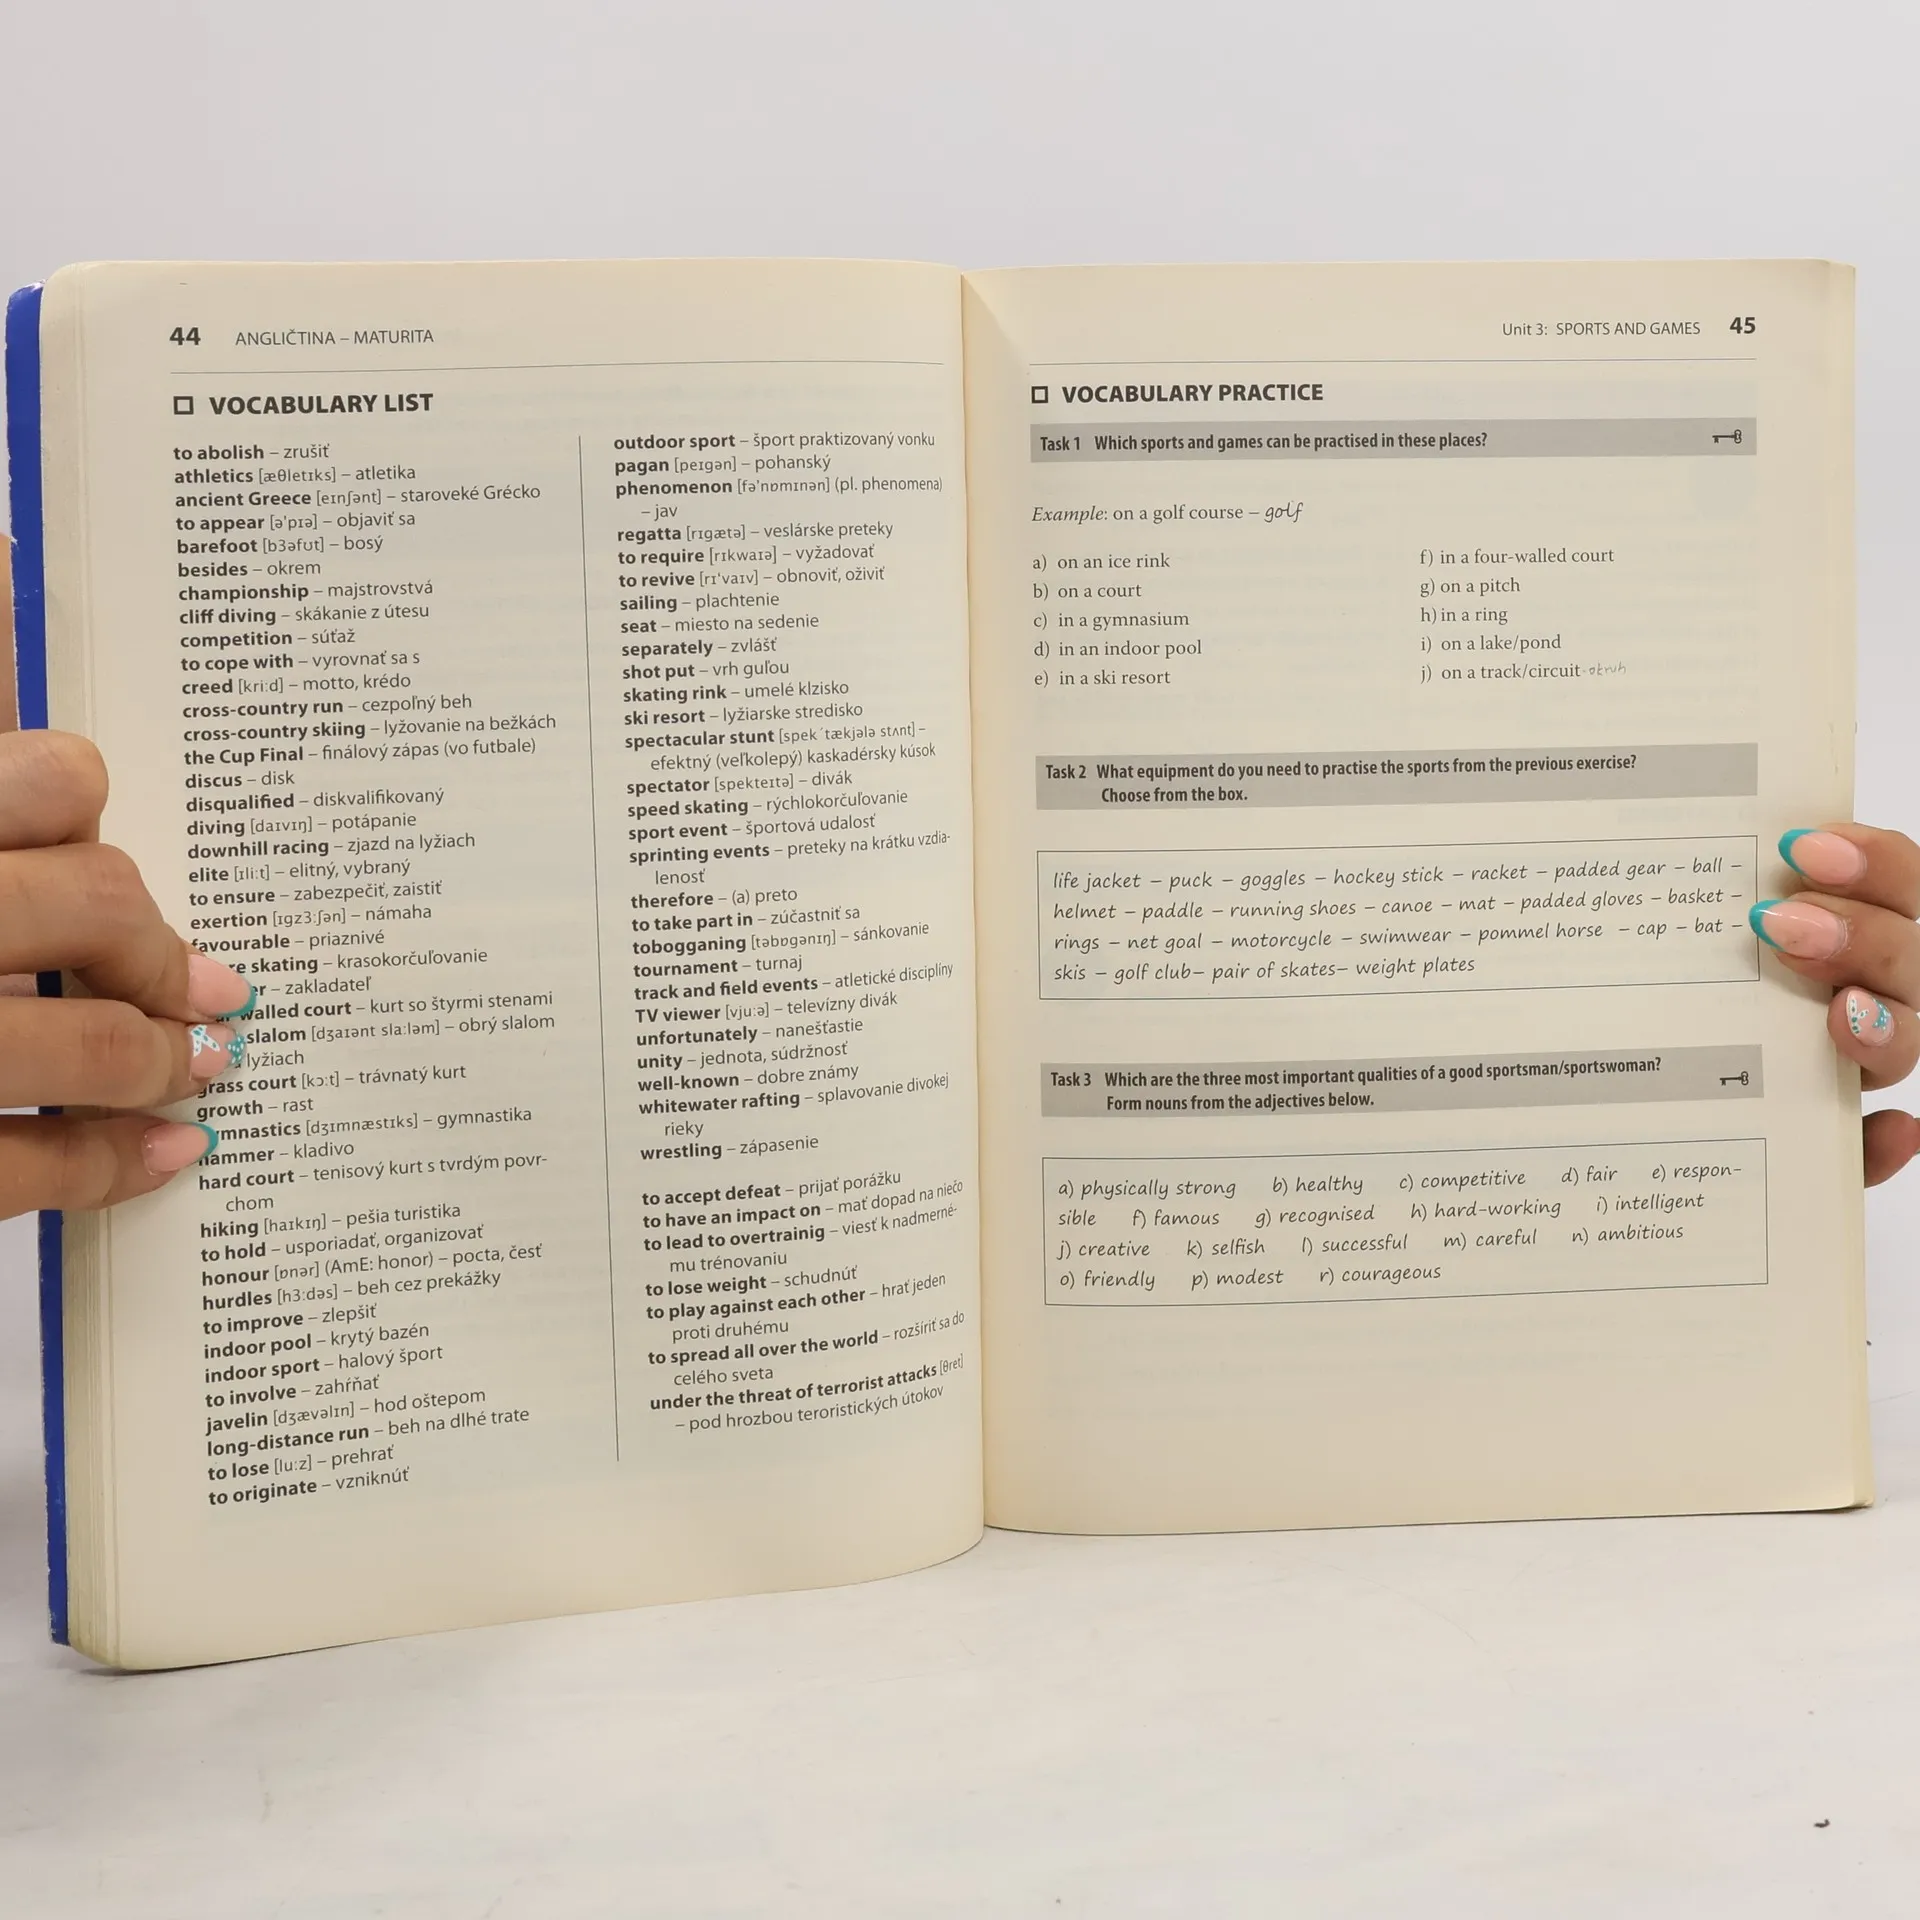 44 ANGLIČTINA – MATURITA
VOCABULARY LIST
to abolish – zrušiť
athletics [æθletɪks] – atletika
ancient Greece [eɪnʃənt] – staroveké Grécko
to appear [ə'pɪə] – objaviť sa
barefoot [bɜəfʊt] – bosý
besides – okrem
championship – majstrovstvá
cliff diving – skákanie z útesu
competition – súťaž
to cope with – vyrovnať sa s
creed [kri:d] – motto, krédo
cross-country run – cezpoľný beh
cross-country skiing – lyžovanie na bežkách
the Cup Final – finálový zápas (vo futbale)
discus – disk
disqualified – diskvalifikovaný
diving [daɪvɪŋ] – potápanie
downhill racing – zjazd na lyžiach
elite [ɪli:t] – elitný, vybraný
to ensure – zabezpečiť, zaistiť
exertion [ɪgzɜ:ʃən] – námaha
favourable – priaznivé
skating – krasokorčuľovanie
– zakladateľ
walled court – kurt so štyrmi stenami
slalom [dʒaɪənt sla:ləm] – obrý slalom
lyžiach
grass court [kɔ:t] – trávnatý kurt
growth – rast
gymnastics [dʒɪmnæstɪks] – gymnastika
hammer – kladivo
hard court – tenisový kurt s tvrdým povr-
chom
hiking [haɪkɪŋ] – pešia turistika
to hold – usporiadať, organizovať
honour [ɒnər] (AmE: honor) – pocta, česť
hurdles [hɜ:dəs] – beh cez prekážky
to improve – zlepšiť
indoor pool – krytý bazén
indoor sport – halový šport
to involve – zahŕňať
javelin [dʒævəlɪn] – hod oštepom
long-distance run – beh na dlhé trate
to lose [lu:z] – prehrať
to originate – vzniknúť
outdoor sport – šport praktizovaný vonku
pagan [peɪgən] – pohanský
phenomenon [fə'nɒmɪnən] (pl. phenomena)
– jav
regatta [rɪgætə] – veslárske preteky
to require [rɪkwaɪə] – vyžadovať
to revive [rɪ'vaɪv] – obnoviť, oživiť
sailing – plachtenie
seat – miesto na sedenie
separately – zvlášť
shot put – vrh guľou
skating rink – umelé klzisko
ski resort – lyžiarske stredisko
spectacular stunt [spek´tækjələ stʌnt] –
efektný (veľkolepý) kaskadérsky kúsok
spectator [spekteɪtə] – divák
speed skating – rýchlokorčuľovanie
sport event – športová udalosť
sprinting events – preteky na krátku vzdia-
lenosť
therefore – (a) preto
to take part in – zúčastniť sa
tobogganing [təbɒgənɪŋ] – sánkovanie
tournament – turnaj
track and field events – atletické disciplíny
TV viewer [vju:ə] – televízny divák
unfortunately – nanešťastie
unity – jednota, súdržnosť
well-known – dobre známy
whitewater rafting – splavovanie divokej
rieky
wrestling – zápasenie
to accept defeat – prijať porážku
to have an impact on – mať dopad na niečo
to lead to overtrainig – viesť k nadmerné-
mu trénovaniu
to lose weight – schudnúť
to play against each other – hrať jeden
proti druhému
to spread all over the world – rozšíriť sa do
celého sveta
under the threat of terrorist attacks [θret]
– pod hrozbou teroristických útokov
Unit 3: SPORTS AND GAMES 45
VOCABULARY PRACTICE
Task 1 Which sports and games can be practised in these places?
Example: on a golf course – golf
a) on an ice rink
b) on a court
c) in a gymnasium
d) in an indoor pool
e) in a ski resort
f) in a four-walled court
g) on a pitch
h) in a ring
i) on a lake/pond
j) on a track/circuit -okruh
Task 2 What equipment do you need to practise the sports from the previous exercise?
Choose from the box.
life jacket – puck – goggles – hockey stick – racket – padded gear – ball –
helmet – paddle – running shoes – canoe – mat – padded gloves – basket –
rings – net goal – motorcycle – swimwear – pommel horse – cap – bat –
skis – golf club– pair of skates– weight plates
Task 3 Which are the three most important qualities of a good sportsman/sportswoman?
Form nouns from the adjectives below.
a) physically strong b) healthy c) competitive d) fair e) respon-
sible f) famous g) recognised h) hard-working i) intelligent
j) creative k) selfish l) successful m) careful n) ambitious
o) friendly p) modest r) courageous